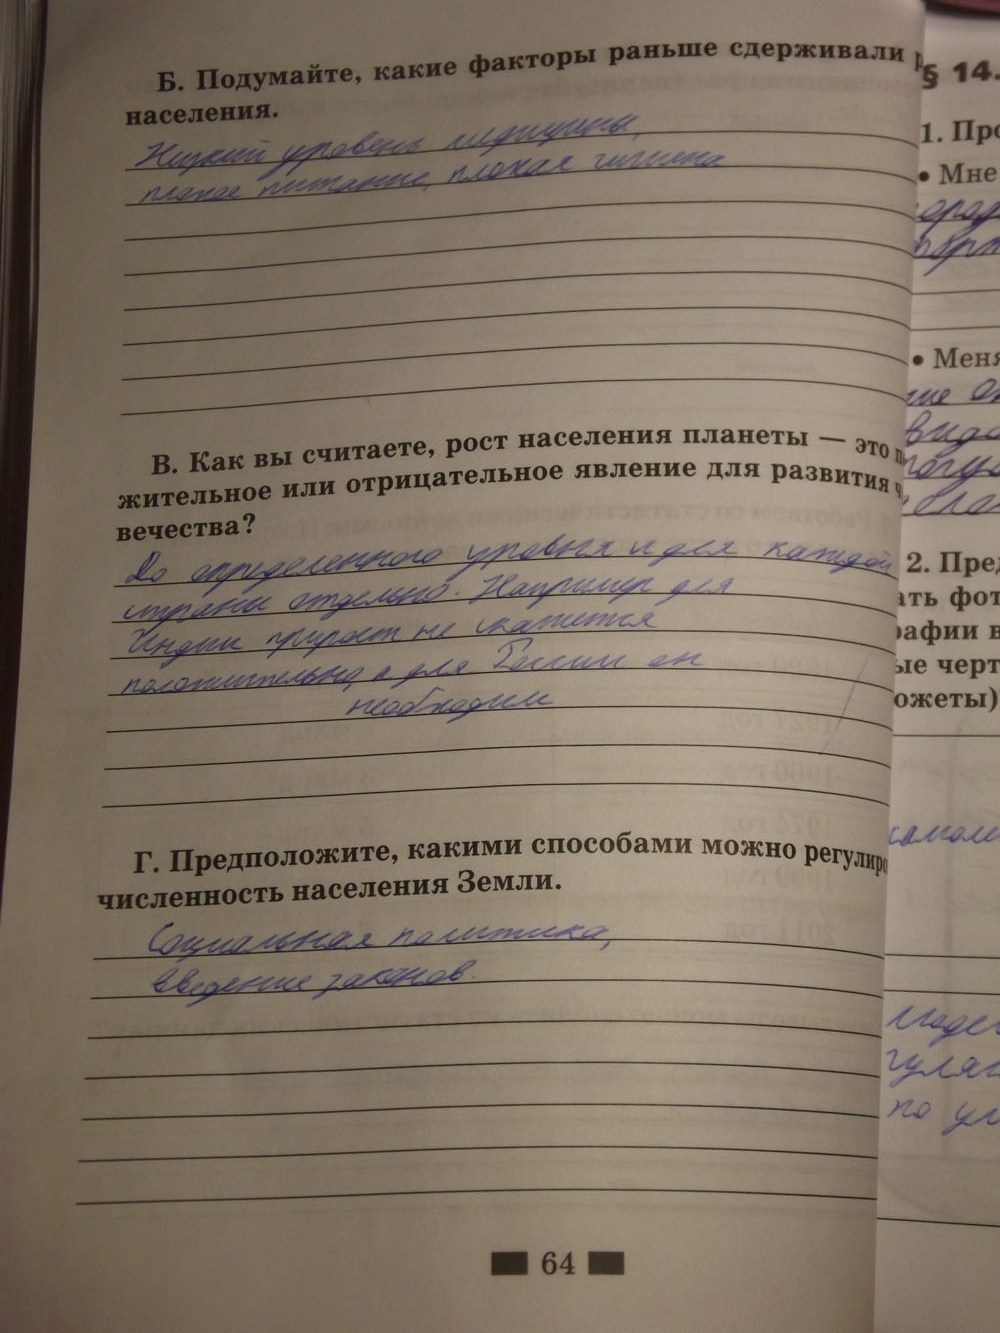 Б. Подумайте, какие факторы раньше сдерживали р
населения.
Низкий уровень медицины,
плохое питание, плохая гигиена
В. Как вы считаете, рост населения планеты — это п
жительное или отрицательное явление для развития ч
вечества?
До определенного уровня и для каждой
страны отдельно. Например для
Индии прирост не скажется
положительно, а для России он
необходим
Г. Предположите, какими способами можно регулиро
численность населения Земли.
Социальная политика,
введение законов.
64
§ 14.
1. Про
• Мне
• Меня
2. Пред
ать фот
рафии в
ые черт
южеты)